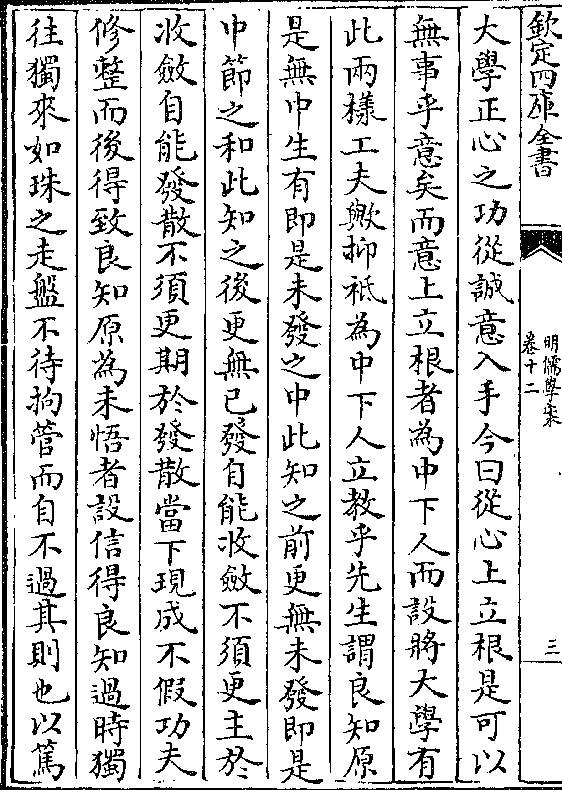 欽定四庫全書
明儒學案
卷十二
三
大學正心之功從誠意入手今曰從心上立根是可以
無事乎意矣而意上立根者為中下人而設將大學有
此兩樣工夫歟抑衹為中下人立教乎先生謂良知原
是無中生有即是未發之中此知之前更無未發即是
中節之和此知之後更無已發自能收斂不須更主於
收斂自能發散不須更期於發散當下現成不假功夫
修整而後得致良知原為未悟者設信得良知過時獨
往獨來如珠之走盤不待拘管而自不過其則也以篤